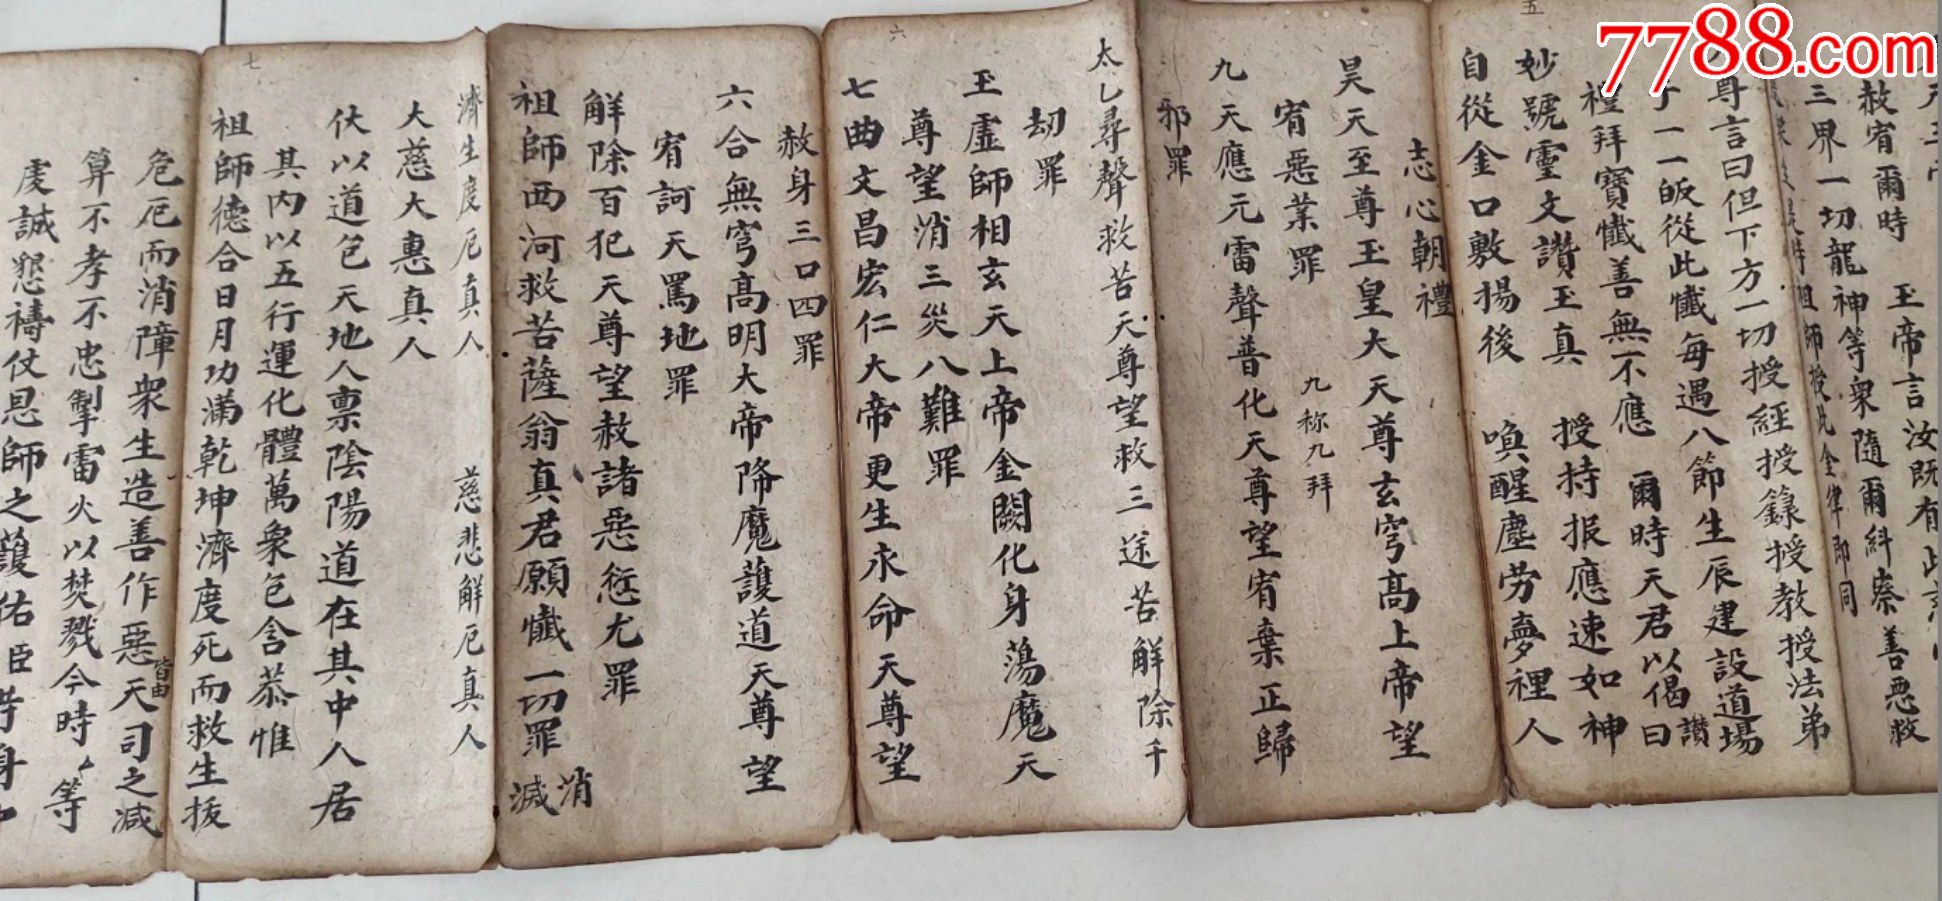 7788.com
五
赦宥爾時 玉帝言汝既有此
三界一切龍神等衆隨爾糾察善惡救
祖師授此金律即同
尊言曰但下方一切授經授籙授教授法弟
子一一皈從此懺每遇八節生辰建設道場
禮拜寶懺善無不應 爾時天君以偈讃曰
妙號靈文讚玉真 授持报應速如神
自從金口敷揚後 喚醒塵劳夢裡人
志心朝禮
昊天至尊玉皇大天尊玄穹高上帝望
宥惡業罪 九称九拜
九天應元雷聲普化天尊望宥棄正歸
邪罪
六
太乚尋聲救苦天尊望救三途苦解除千
劫罪
玉虛師相玄天上帝金闕化身蕩魔天
尊望消三災八難罪
七曲文昌宏仁大帝更生永命天尊望
赦身三口四罪
六合無穹高明大帝降魔護道天尊望
宥訶天罵地罪
解除百犯天尊望赦諸惡愆尤罪
祖師西河救苦薩翁真君願懺一切罪消滅
七
濟生度厄真人 慈悲解厄真人
大慈大惠真人
伏以道包天地人禀陰陽道在其中人居
其内以五行運化體萬象包含恭惟
祖師德合日月功滿乾坤濟度死而救生拔
危厄而消障衆生造善作惡皆由天司之减
算不孝不忠掣雷火以焚戮今時等
虔誠懇禱仗恩師之護佑臣等身